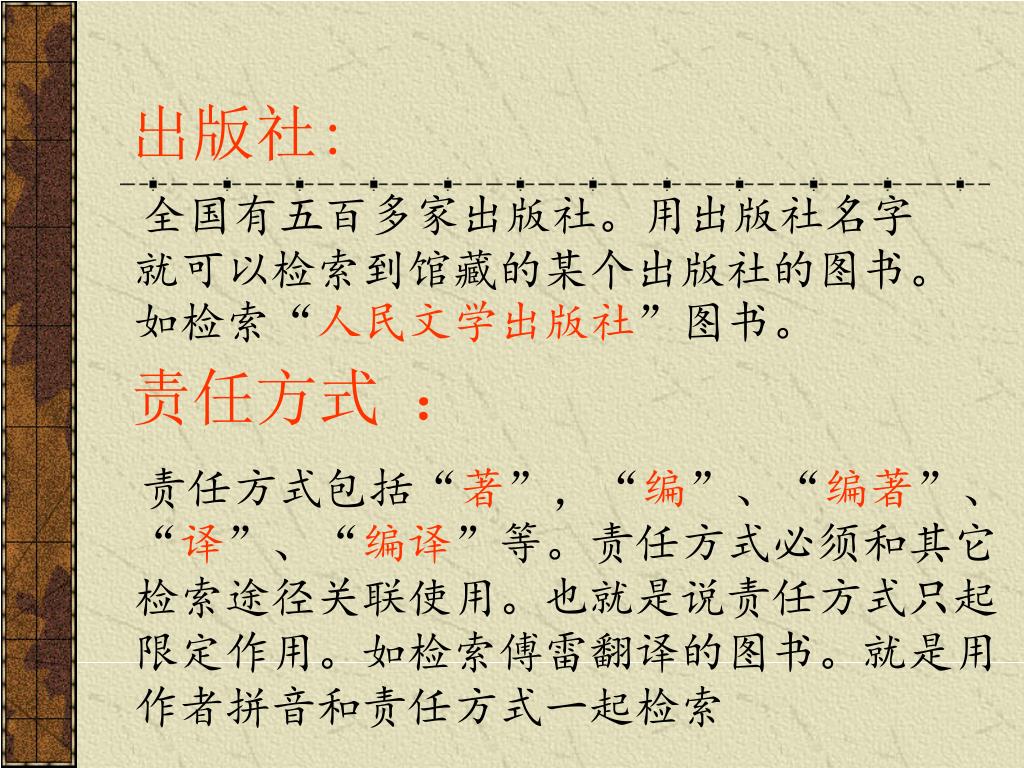 出版社:
全国有五百多家出版社。用出版社名字
就可以检索到馆藏的某个出版社的图书。
如检索“人民文学出版社”图书。
责任方式 ：
责任方式包括“著”，“编”、“编著”、
“译”、“编译”等。责任方式必须和其它
检索途径关联使用。也就是说责任方式只起
限定作用。如检索傅雷翻译的图书。就是用
作者拼音和责任方式一起检索